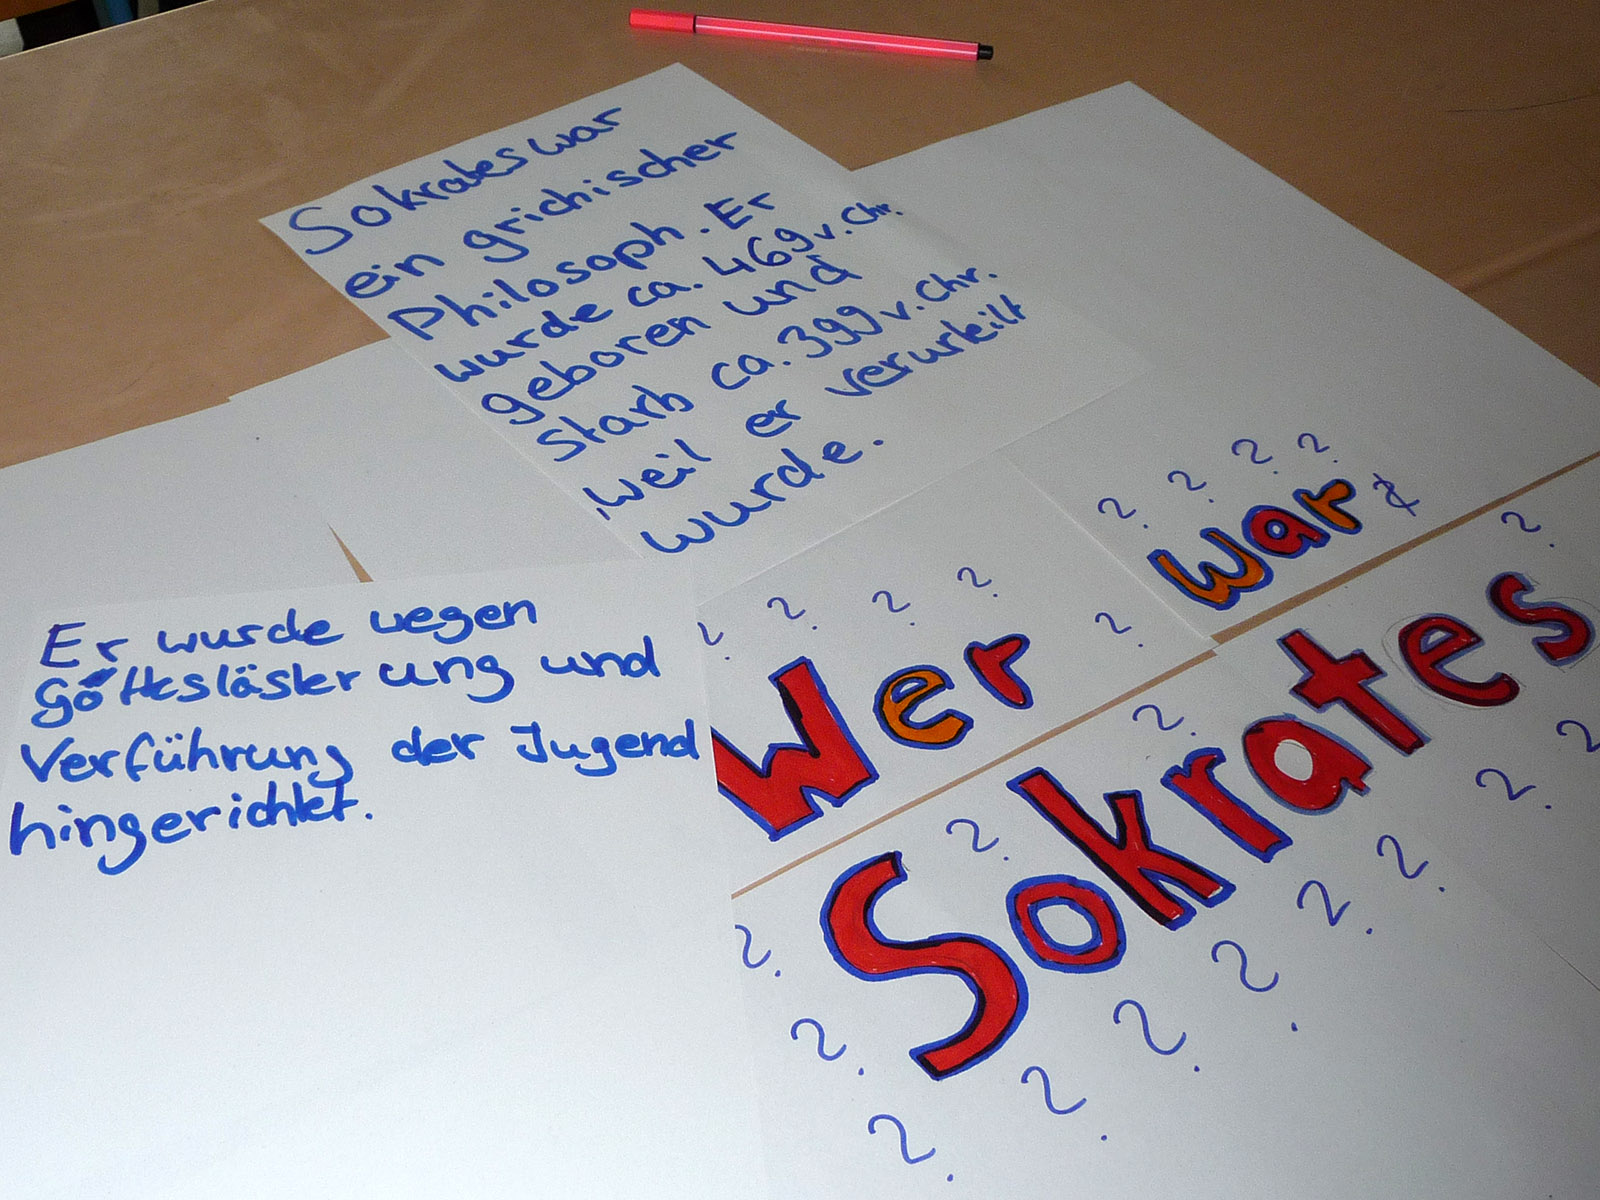 Sokrates war
ein grichischer
Philosoph. Er
wurde ca. 469 v. Chr.
geboren und
starb ca. 399 v. Chr.
, weil er verurteilt
wurde.
Er wurde wegen
gottesläster ung und
Verführung der Jugend
hingerichtet.
? ? ? ?
war ?
? ? ? ? ?
Wer
? ? ? ? ?
Sokrates
? ? ? ? ? ? ? ? ? ?